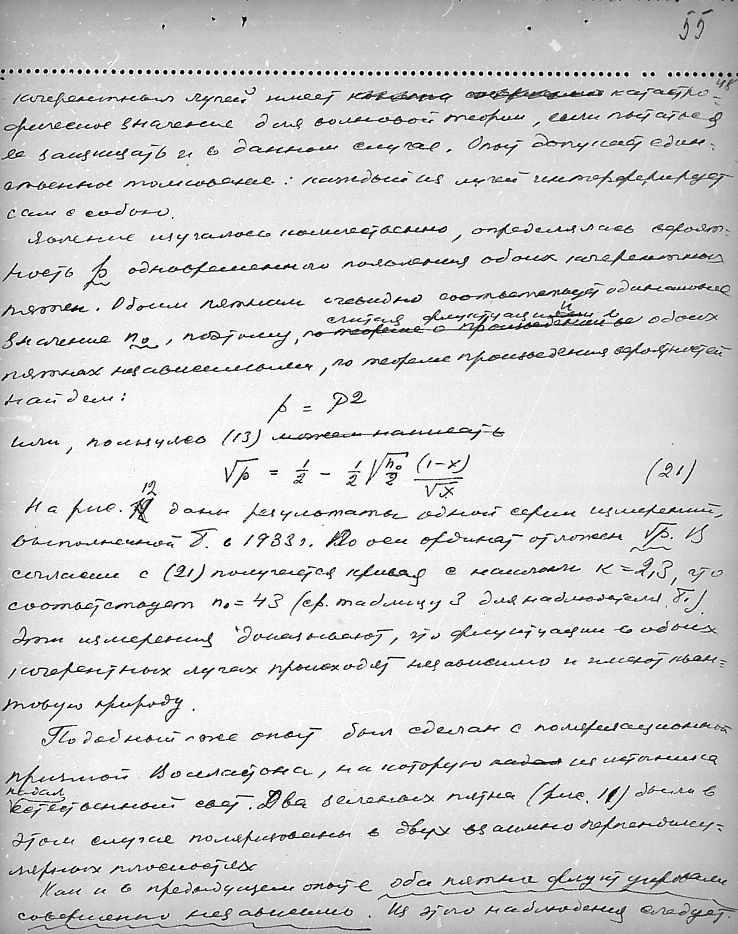 55
48
когерентных лучей имеет катастро-
фическое значение для волновой теории, если пытаться
ее защищать и в данном случае. Опыт допускает един-
ственное толкование: каждый из лучей интерферирует
сам с собою.
Явление изучалось количественно, определялась вероят-
ность p одновременного появления обоих когерентных
пятен. Обоим пятнам очевидно соответствует одинаковое
считая флуктуации в
значение n₀, поэтому, по теореме о произведении ве обоих
пятнах независимыми, по теореме произведения вероятностей
найдем:
p = P²
или, пользуясь (13) можем написать
√p = 1/2 − 1/2 √(n₀/2) (1−x)/√x (21)
12
На рис. 11 даны результаты одной серии измерений,
выполненной Б. в 1933 г. По оси ординат отложен √p. В
согласии с (21) получается кривая с наклоном K=2,3, что
соответствует n₀=43 (ср. таблицу 3 для наблюдателя Б.).
Эти измерения доказывают, что флуктуации в обоих
когерентных лучах происходят независимо и имеют кван-
товую природу.
Подобный же опыт был сделан с поляризационной
призмой Волластона, на которую падал из источника
падал
естественный свет. Два зеленых пятна (рис. 11) были в
этом случае поляризованы в двух взаимно перпендику-
лярных плоскостях
Как и в предыдущем опыте оба пятна флуктуировали
совершенно независимо. Из этого наблюдения следует